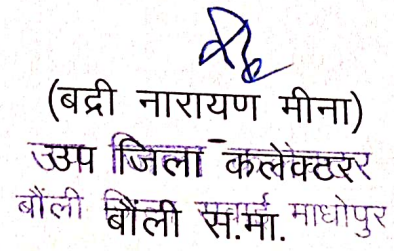 (बद्री नारायण मीना)
उप जिला कलेक्टर
बौंली बौंली स.मा. सवाई माधोपुर